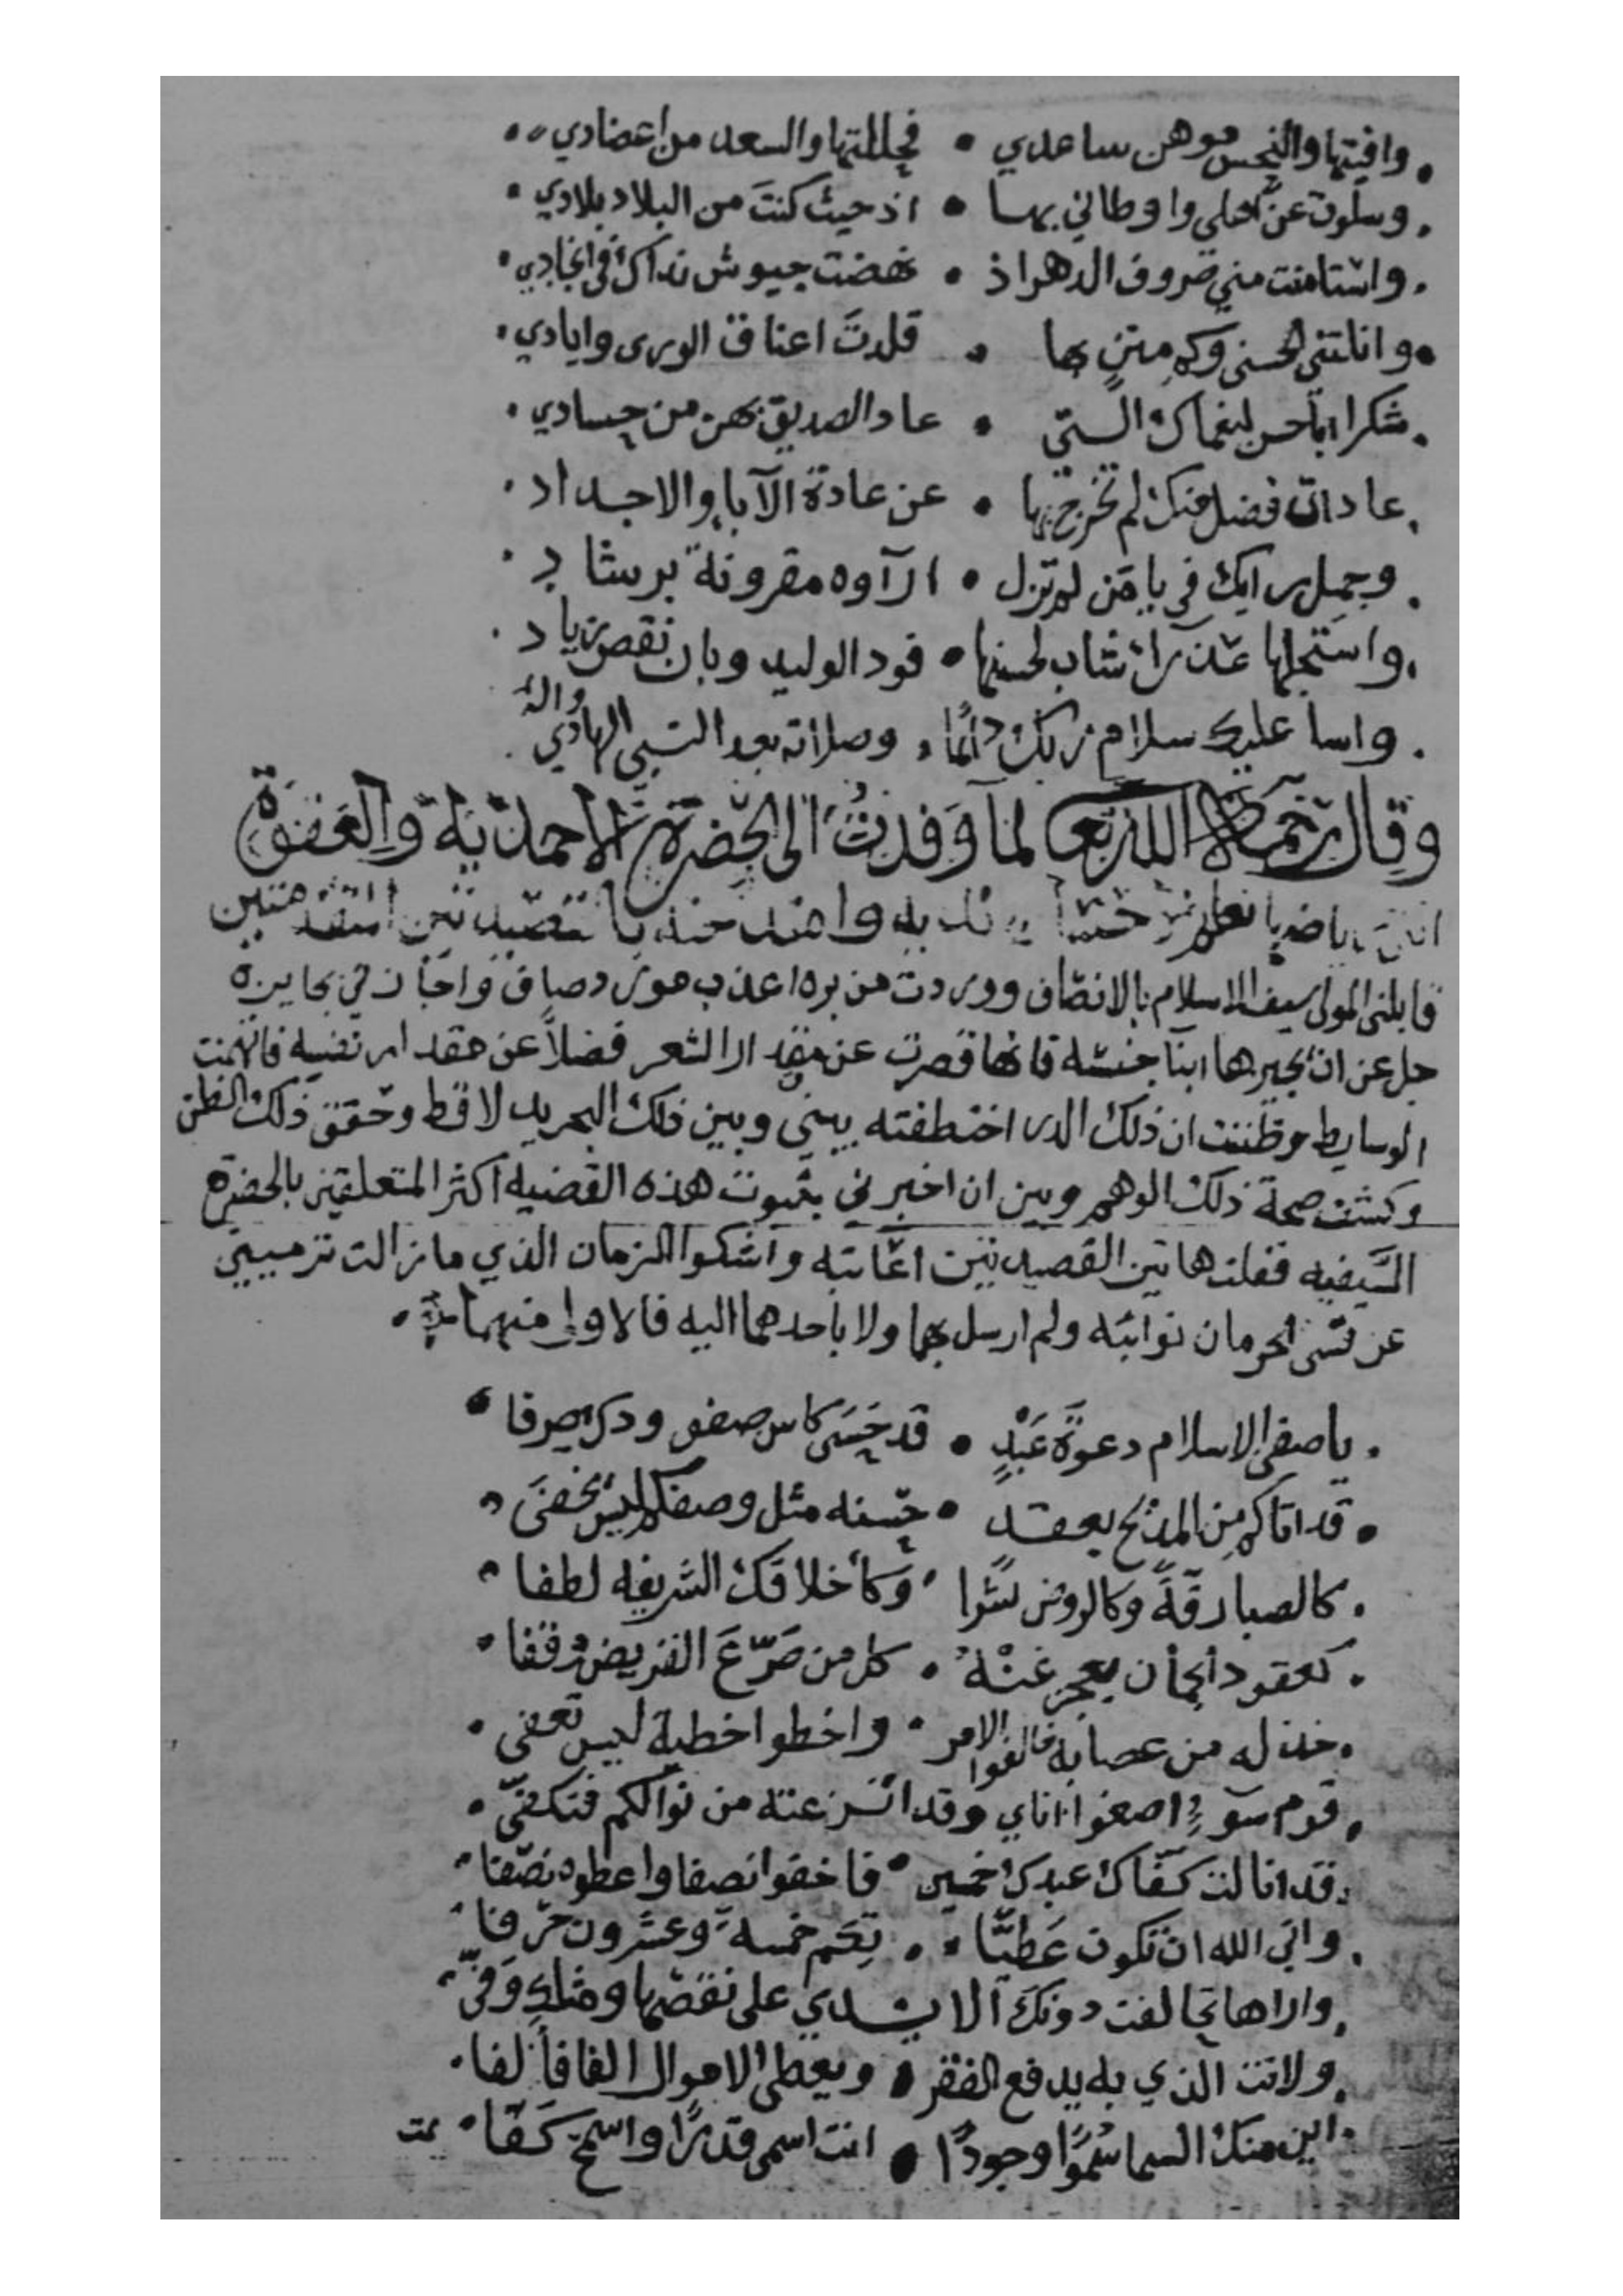 وافيتها والنحس موهن ساعدي • فحللتها والسعد من اعضادي
وسلوت عن اهلي واوطاني بها • اذ حيث كنت من البلاد بلادي
واستامنت مني صروف الدهر اذ • نهضت جيوش نداك في انجادي
وانلتني الحسنى وكم منن بها • قلدت اعناق الورى وايادي
شكرا لنعماك التي • عاد الصديق بهن من حسادي
عادات فضل منك لم تخرج بها • عن عادة الآباء والاجداد
وجميل رايك في يا من لم تزل • ارآوه مقرونة برشاد
واستجلها عذراء شاب لحسنها • فود الوليد وبان نقص زياد
واسا عليك سلام ربك دائما • وصلاته بعد النبي الهادي واله
وقال رحمه الله تع لما وفدت الى الحضرة الاحمدية والعفوة
قابلني المولى سيف الاسلام بالانصاف ووردت من بره اعذب مورد صاف واجازني بجايزة
جل عن ان يجيزها ابنا جنسه فانها قصرت عن الشعر فضلا عن فاتهمت
الوسايط وظننت ان ذلك اختطفته بيني وبين ذلك البحر يد لاقط وحقق ذلك الظن
وكشف صحة ذلك الوهم وبين ان اخبرني بثبوت هذه القضيه اكثر المتعلقين بالحضرة
السيفيه فقلت هاتين القصيدتين اعاتبه واشكوا الزمان الذي ما زالت ترميني
عن قسي الحرمان نوائبه ولم ارسل بهما ولا باحدهما اليه فالاولى منهما
يا صفي الاسلام دعوة عبد • قد حسى كاس صفو ودك صرفا
قد اتاكم من المدح بعقد • حسنه مثل وصفكم ليس يخفى
كالصبا رقة وكالروض نشرا • وكأخلاقك الشريفه لطفا
كعقود الجمان يعجز عنه • كل من صرع القريض وقفا
خذ له من عصابة خالفوا الامر • واخطوا خطية ليس تعفى
قوم سوء اصغوا اناي وقد انزعته من نوالكم فتكفى
قد انالت كفاك عبدك خمسين • فاخفوا نصفا واعطوه نصفا
وابى الله ان تكون عطيا • تكم خمسة وعشرون حرفا
واراها تحالفت دونك الايدي على نقصها ومثلك وفى
ولانت الذي به يدفع الفقر • ويعطي الاموال الفا فألفا
اين منك السما سموا وجودا • انت اسمى قدرا واسمح كفا • تمت